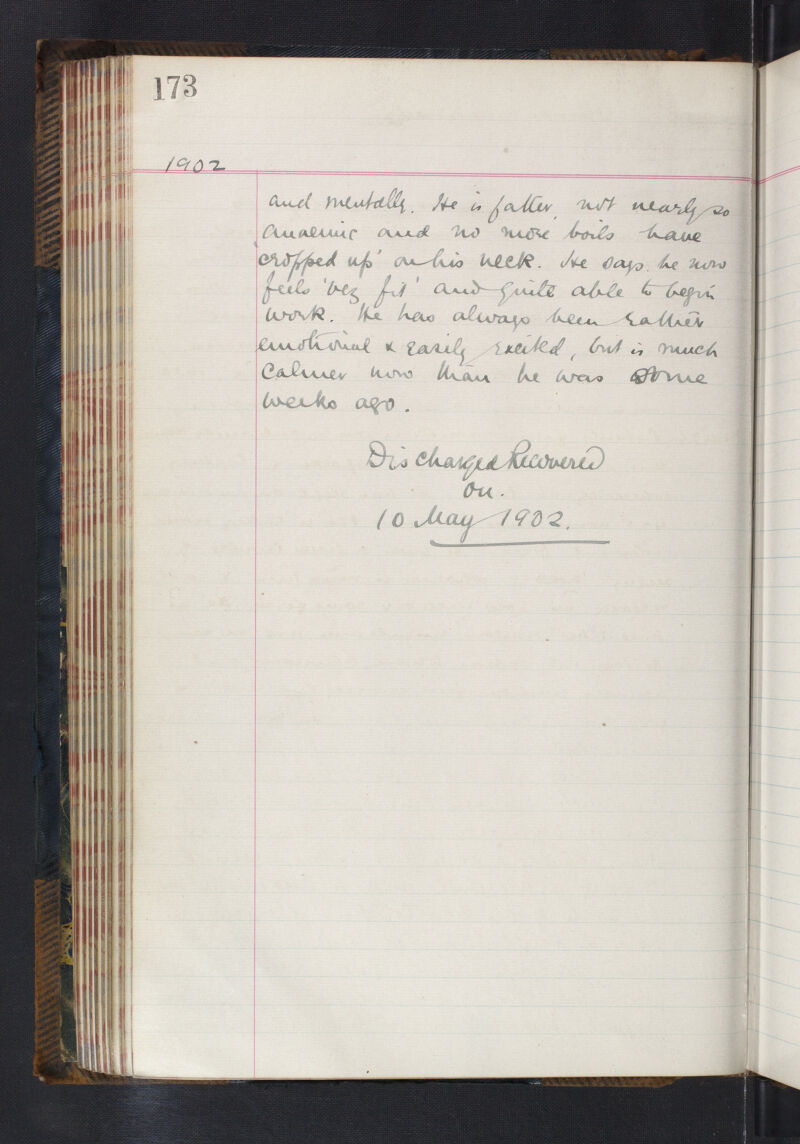 173
1902
and mentally. He is fatter, not nearly so
anaemic and no more boils have
'cropped up' on his neck. He says he now
feels 'very fit' and quite able to begin
work. He has always been rather
emotional & easily excited, but is much
calmer now than he was some
weeks ago.
Discharged Recovered
on.
10 May 1902.